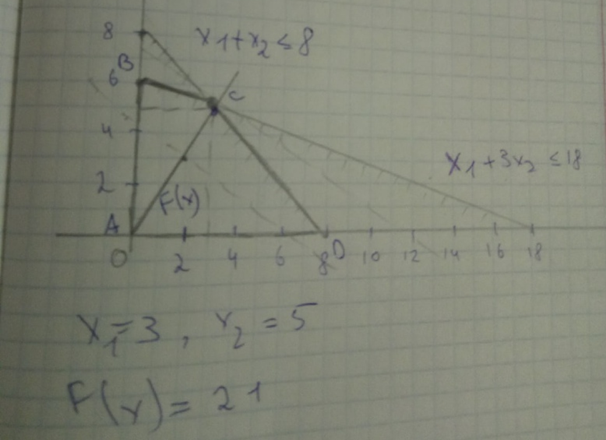 8
x1+x2 ≤ 8
6 B
C
4
x1+3x2 ≤ 18
2
F(x)
A
0 2 4 6 8 D 10 12 14 16 18
x1=3, x2=5
F(x)=21